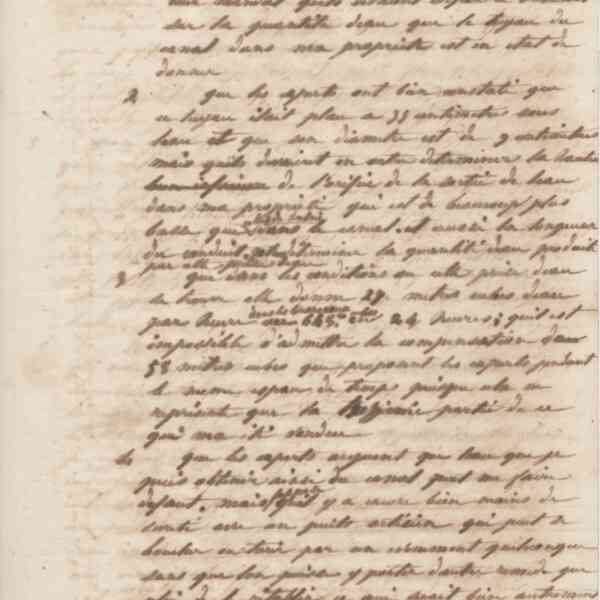 sur la quantité d'eau que le tuyau du
canal dans ma propriété est en état de
donner
2 que les experts ont bien constaté que
ce tuyau était placé a 33 centimetres sous
l'eau et que son diametre est de 9 centimetres
mais qu'ils devaient en outre determiner la hauteur
de l'orifice de la sortie de l'eau
dans ma propriété qui est de beaucoup plus
basse que dans le canal et aussi la longueur
du conduit determine la quantité d'eau produite
par elle
3 que dans les conditions ou elle prise d'eau
se trouve elle donne 27 metres cubes d'eau
par heure 648 24 heures; qu'il est
impossible d'admettre la compensation d'eau
58 metres cubes que proposent les experts pendant
le meme espace de temps puisque cela ne
représente que la partie de ce
qui m'a été vendue
4 que les experts arguent que l'eau que je
puis obtenir ainsi du canal peut me faire
defaut, mais qu'il y a encore bien moins de
avec un puits artésien qui peut se
boucher ou tarir par un evenement quelconque
sans que l'on puisse y porter d'autre remede que